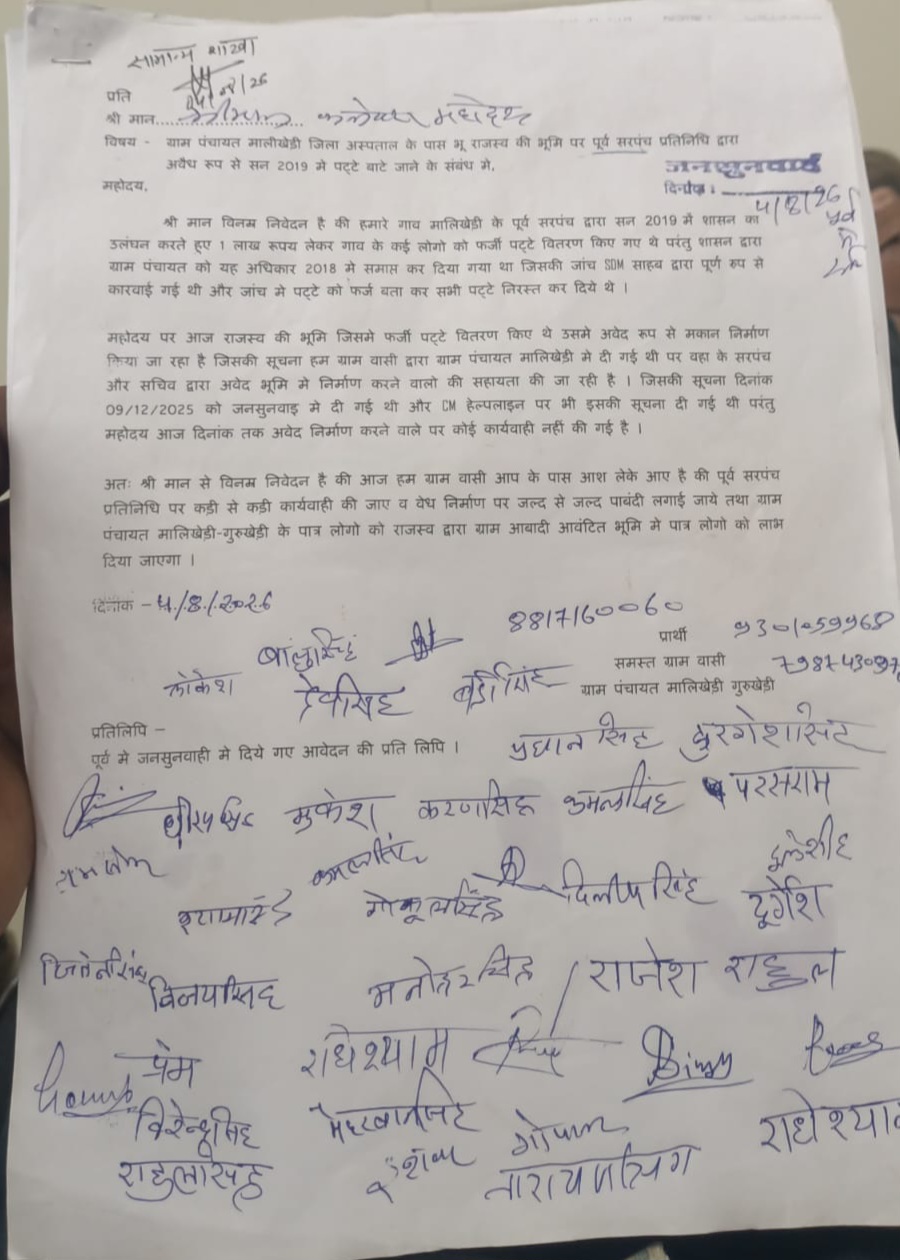 सामान्य शाखा
प्रति
श्री मान................................ कलेक्टर महोदय
विषय - ग्राम पंचायत मालीखेड़ी जिला अस्पताल के पास भू राजस्व की भूमि पर पूर्व सरपंच प्रतिनिधि द्वारा
अवैध रूप से सन 2019 मे पट्टे बाटे जाने के संबंध मे,
जनसुनवाई
महोदय,
दिनांक :
4/8/26
श्री मान विनम्र निवेदन है की हमारे गाव मालिखेड़ी के पूर्व सरपंच द्वारा सन 2019 मे शासन का
उलंघन करते हूए 1 लाख रूपय लेकर गाव के कई लोगो को फर्जी पट्टे वितरण किए गए थे परंतु शासन द्वारा
ग्राम पंचायत को यह अधिकार 2018 मे समाप्त कर दिया गया था जिसकी जांच SDM साहब द्वारा पूर्ण रूप से
कारवाई गई थी और जांच मे पट्टे को फर्ज बता कर सभी पट्टे निरस्त कर दिये थे ।
महोदय पर आज राजस्व की भूमि जिसमे फर्जी पट्टे वितरण किए थे उसमे अवेद रूप से मकान निर्माण
किया जा रहा है जिसकी सूचना हम ग्राम वासी द्वारा ग्राम पंचायत मालिखेड़ी मे दी गई थी पर वहा के सरपंच
और सचिव द्वारा अवेद भूमि मे निर्माण करने वालो की सहायता की जा रही है । जिसकी सूचना दिनांक
09/12/2025 को जनसुनवाइ मे दी गई थी और CM हेल्पलाइन पर भी इसकी सूचना दी गई थी परंतु
महोदय आज दिनांक तक अवेद निर्माण करने वाले पर कोई कार्यवाही नहीं की गई है ।
अतः श्री मान से विनम्र निवेदन है की आज हम ग्राम वासी आप के पास आश लेके आए है की पूर्व सरपंच
प्रतिनिधि पर कड़ी से कड़ी कार्यवाही की जाए व वेध निर्माण पर जल्द से जल्द पाबंदी लगाई जाये तथा ग्राम
पंचायत मालिखेड़ी-गुरुखेड़ी के पात्र लोगो को राजस्व द्वारा ग्राम आबादी आवंटित भूमि मे पात्र लोगो को लाभ
दिया जाएगा ।
दिनांक - 4/8/2026
8817160060
प्रार्थी 9301059968
बालुसिंह
समस्त ग्राम वासी
लोकेश देवीसिंह बद्रीसिंह ग्राम पंचायत मालिखेड़ी गुरुखेड़ी
प्रतिलिपि –
पूर्व मे जनसुनवाही मे दिये गए आवेदन की प्रति लिपि ।
प्रधान सिंह दुरगेशसिंह
मुकेश करणसिंह कमलसिंह परसराम
कमलसिंह
गोकूलसिंह दिलीपसिंह दूर्गेश
विजयसिंह मनोहरसिंह राजेश राहुल
प्रेम राधेश्याम
विरेन्द्रसिंह मेहरबानसिंह गोपाल राधेश्याम
राहुलसिंह नारायणसिंग